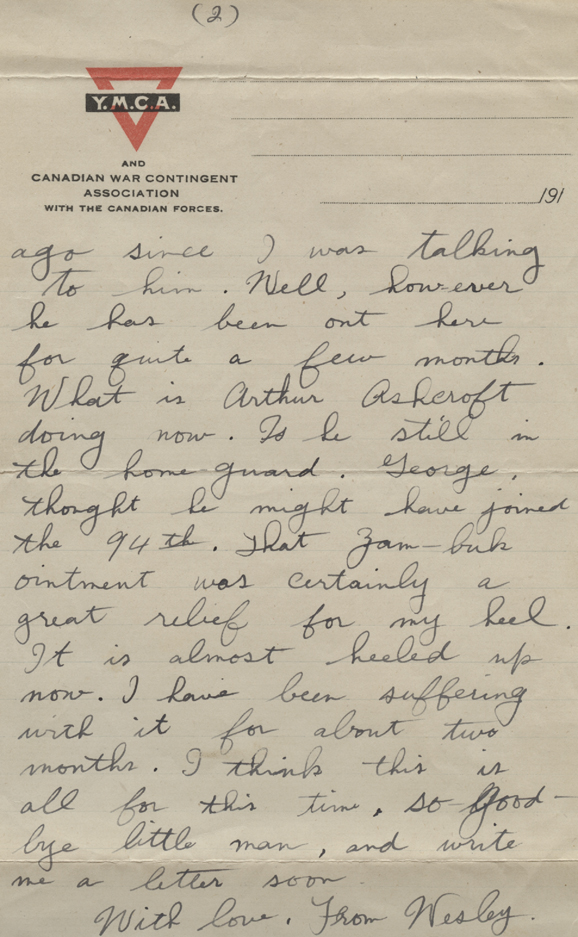 (2)
Y.M.C.A.
AND
CANADIAN WAR CONTINGENT
ASSOCIATION
WITH THE CANADIAN FORCES.
191
ago since I was talking
to him. Well, however
he has been out here
for quite a few months.
What is Arthur Ashcroft
doing now. Is he still in
the home guard. George,
thought he might have joined
the 94th. That Zam-buk
ointment was certainly a
great relief for my heel.
It is almost heeled up
now. I have been suffering
with it for about two
months. I think this is
all for this time, so good-
bye little man, and write
me a letter soon
With love. From Wesley.